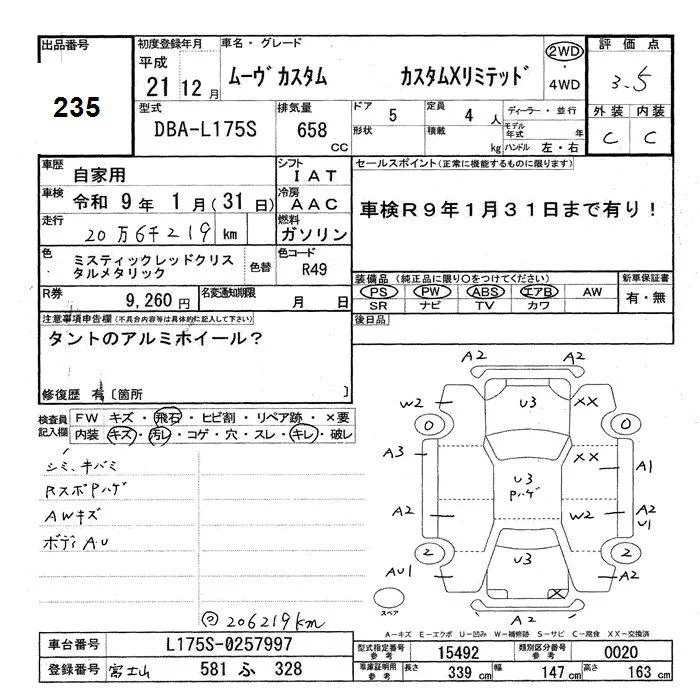 出品番号
235
初度登録年月
平成
21 12 月
車名・グレード
ムーヴカスタム カスタムXリミテッド
2WD
・
4WD
評価点
3.5
外装 内装
C C
型式
DBA-L175S
排気量
658
CC
ドア 5
形状
定員 4 人
積載 kg
ディーラー・並行
モデル年式 年
ハンドル 左・右
車歴
自家用
シフト
IAT
セールスポイント(正常に機能するものに限ります)
車検R9年1月31日まで有り!
車検
令和 9 年 1 月 ( 31 日)
冷房
AAC
走行
20万6千219 km
燃料
ガソリン
色
ミスティックレッドクリス
タルメタリック
色替
色コード
R49
装備品 (純正品に限り○をつけてください)
PS PW ABS エアB AW
SR ナビ TV カワ
新車保証書
有・無
R券
9,260 円
名変通知期限
月 日
後日品
注意事項申告欄(不具合内容等は具体的に記入して下さい)
タントのアルミホイール?
修復歴 有〔箇所 〕
検査員
記入欄
FW キズ・飛石・ヒビ割・リペア跡・×要
内装 キズ・汚レ・コゲ・穴・スレ・キレ・破レ
シミ、キバミ
RスポPハゲ
AWキズ
ボディAU
206219km
A2
W2 U3 XX
0 0
A3 XX A1
U3
Pハゲ
A2 W2 A2
U1
2 2
U3
AU1 X A2
A2
スペア
A-キズ E-エクボ U-凹み W-補修跡 S-サビ C-腐食 XX-交換済
車台番号
L175S-0257997
登録番号
富士山 581 ふ 328
型式指定番号
参考
15492
類別区分番号
参考
0020
車庫証明用
参考
長さ 339 cm 幅 147 cm 高さ 163 cm